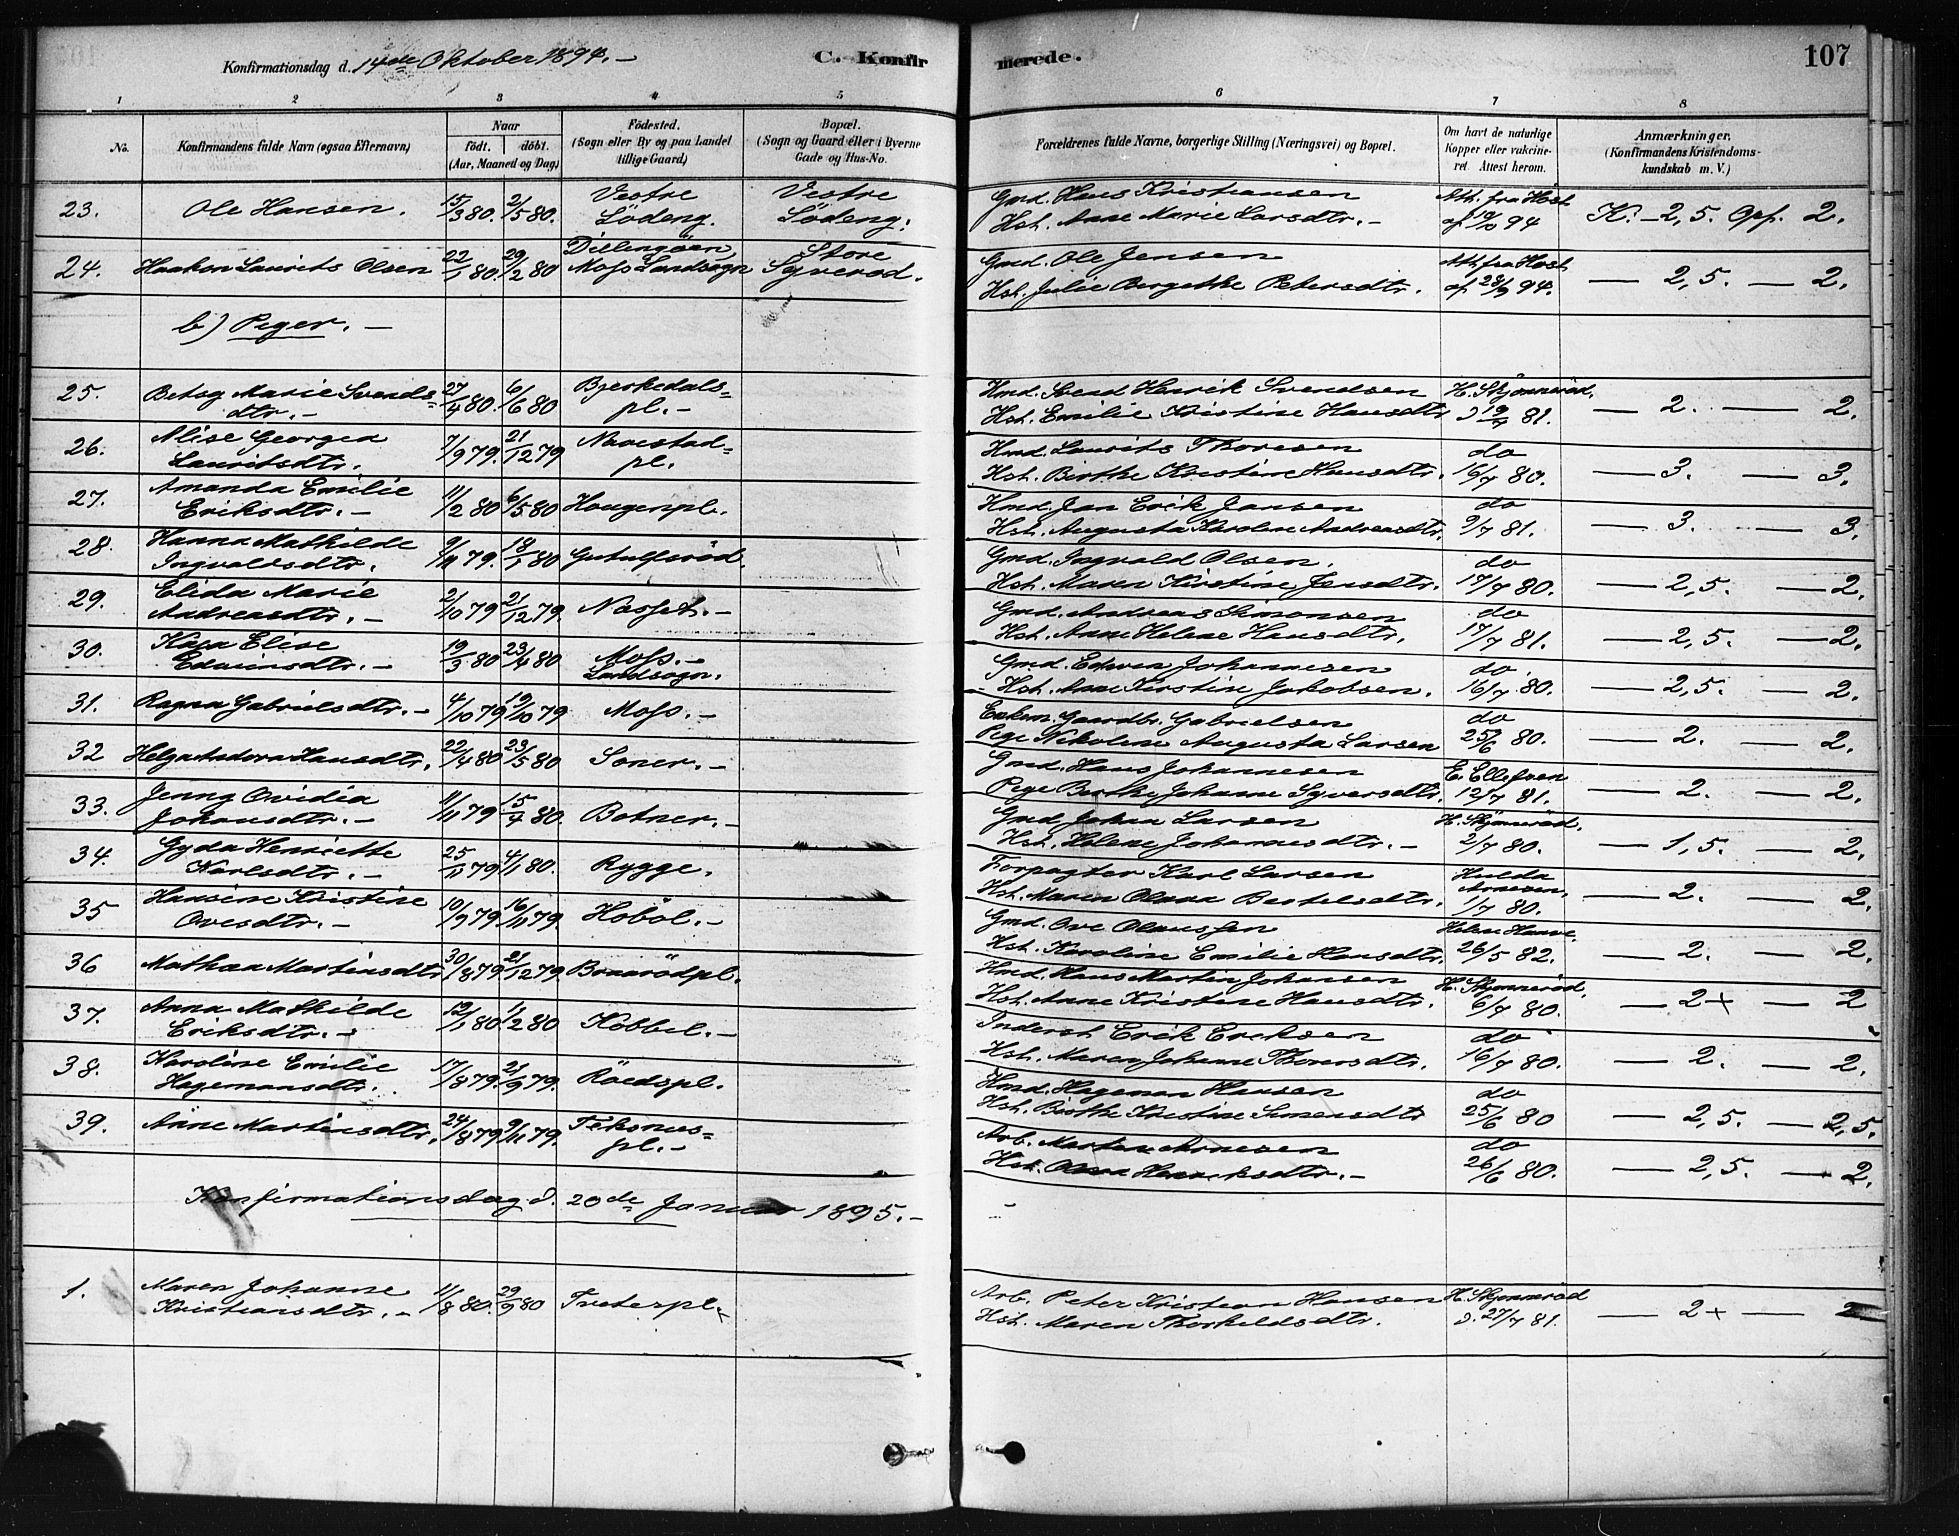 Konfirmationsdag d. 14de Oktober 1894. –
C. Konfirmerede.
107
1 2 3 4 5 6 7 8
No.
Konfirmandens fulde Navn (ogsaa Efternavn)
Naar
födt. döbt.
(Aar, Maaned og Dag)
Födested.
(Sogn eller By og paa Landet tillige Gaard)
Bopæl.
(Sogn og Gaard eller i Byerne Gade og Hus-No.
Forældrenes fulde Navne, borgerlige Stilling (Næringsvei) og Bopæl.
Om havt de naturlige Kopper eller vakcineret. Attest herom.
Anmærkninger.
(Konfirmandens Kristendomskundskab m. V.)
23. Ole Hansen. 15/3 80. 2/5 80. Vestre Södeng. Vestre Södeng.
Gmd. Hans Kristiansen
Hst. Anne Marie Larsdtr. –
Att. fra Höst af 94
K. – 2,5. Opf. 2.
24. Haakon Laurits Olsen 22/1 80. 29/2 80 Dillingöen Moss Landsogn Store Syveröd.
Gmd. Ole Jensen
Hst. Julie Bergethe Petersdtr.
Att. fra Höst af 28/9 94.
— 2,5. — 2.
b) Peger. –
25. Betsy Marie Svendsdtr. – 27/4 80. 6/6 80 Bjerkedalspl. –
Hmd. Svend Henrik Svendsen
Hst. Emilie Kristine Hansdtr.
H. Skjönneröd. 81.
— 2. — 2.
26. Alise Georgea Lauritsdtr. 7/9 79. 21/12 79 Navestadpl.
Hmd. Laurits Thoresen
Hst. Berthe Kristine Hansdtr.
do 16/7 80.
— 3. — 3.
27. Amanda Emilie Eriksdtr. – 11/2 80 6/5 80 Haugenpl.
Hmd. Jan Erik Jansen
Hst. Augusta Karoline Andreasdtr.
do 9/7 81.
— 3. — 3.
28. Hanna Mathilde Ingvaldsdtr. 9/11 79. 18/1 80 Gutulfsröd.
Gmd. Ingvald Olsen.
Hst. Maren Kirstine Jensdtr.
do 17/7 80.
— 2,5. — 2.
29. Elida Marie Andreasdtr. – 2/10 79 21/12 79. Nösset. –
Gmd. Andreas Simonsen
Hst. Anne Helene Hansdtr.
do 17/7 81.
— 2,5. — 2.
30. Kaja Elise Edvinsdtr. – 19/3 80 23/4 80 Moss. – Landsogn.
Gmd. Edvin Johannesen
Hst. Anne Kirstine Jakobsen.
do. 16/7 80.
— 2,5. — 2.
31. Ragna Gabrielsdtr. – 4/10 79 19/10 79 Moss. –
Enkem. Gaardbr. Gabrielsen
Pige Nikoline Augusta Larsen
do 25/6 80.
— 2. — 2.
32 Helga Andora Hansdtr. 22/4 80 23/5 80 Soner. –
Gmd. Hans Johannesen
Pige Berthe Johanne Syversdtr.
E. Ellefsen 12/7 81.
— 2. — 2.
33. Jenny Ovidia Johansdtr. – 11/11 79 15/4 80. Botner. –
Gmd. Johan Larsen
Hst. Helene Johannesdtr. –
H. Skjönneröd. 2/7 80.
— 1,5. — 2.
34. Gyda Henriette Karlsdtr. – 25/11 79 4/1 80. Rygge.
Forpagter Karl Larsen
Hst. Maren Olava Bertelsdtr.
Hulda Arnesen, 1/7 80.
— 2. — 2.
35 Hansine Kristine Ovesdtr. – 10/9 79 16/11 79. Hobøl. –
Gmd. Ove Olaussen
Hst. Karoline Emilie Hansdtr.
26/5 82.
— 2. — 2
36 Mathea Martinsdtr. 30/8 79 21/12 79 Braarödpl.
Hmd. Hans Martin Johansen
Hst. Anne Kristine Hansdtr.
H. Skjönneröd. 6/7 80.
— 2+ — 2
37. Anna Mathilde Eriksdtr. – 12/1 80 1/2 80 Kobbel. –
Inderst Erik Eriksen
Hst. Maren Johanne Thoresdtr.
do 16/7 80.
— 2. — 2.
38. Karoline Emilie Hagemansdtr. 17/8 79. 21/9 79. Röedspl.
Hmd. Hageman Hansen
Hst. Berthe Kristine Simensdtr
do 25/6 80
— 2,5. — 2,5.
39. Anne Martinsdtr. 24/8 79 9/11 79. Teksnespl. –
Arb. Martin Arnesen
Hst. Olava Henriksdtr. –
do 26/6 80.
— 2,5. — 2.
Konfirmationsdag d. 20de Januar 1895. –
1. Maren Johanne Kristiansdtr. – 11/8 80. 29/9 80 Tveterpl.
Arb. Peter Kristian Hansen
Hst. Maren Thorkildsdtr.
H. Skjönneröd d. 27/7 81.
— 2+ — 2